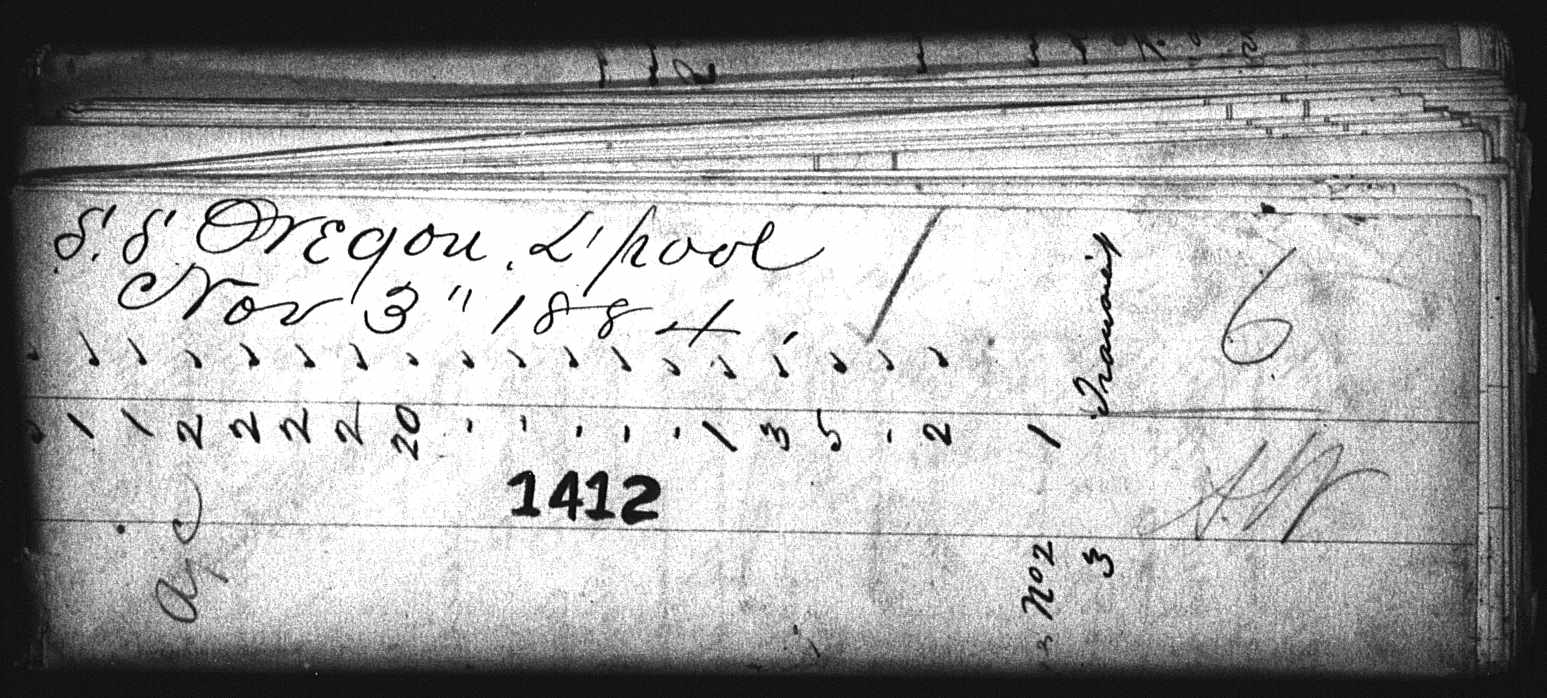 S.S. Oregon, L'pool
Nov 3" 1884.
6
1 1 2 2 2 2 20 " " " " " 1 3 5 " 2 1
1412
No 2
3